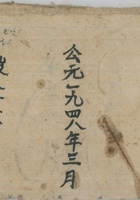 公元一九四八年三月